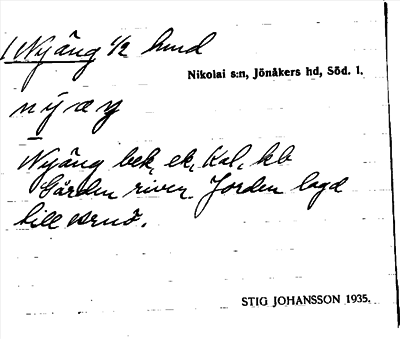 1 Nyäng 1/2 hmd
Nikolai s:n, Jönåkers hd, Söd. l.
Nyäng bek, ek, kal, kb
Gården river. Jorden lagd
till
STIG JOHANSSON 1935.